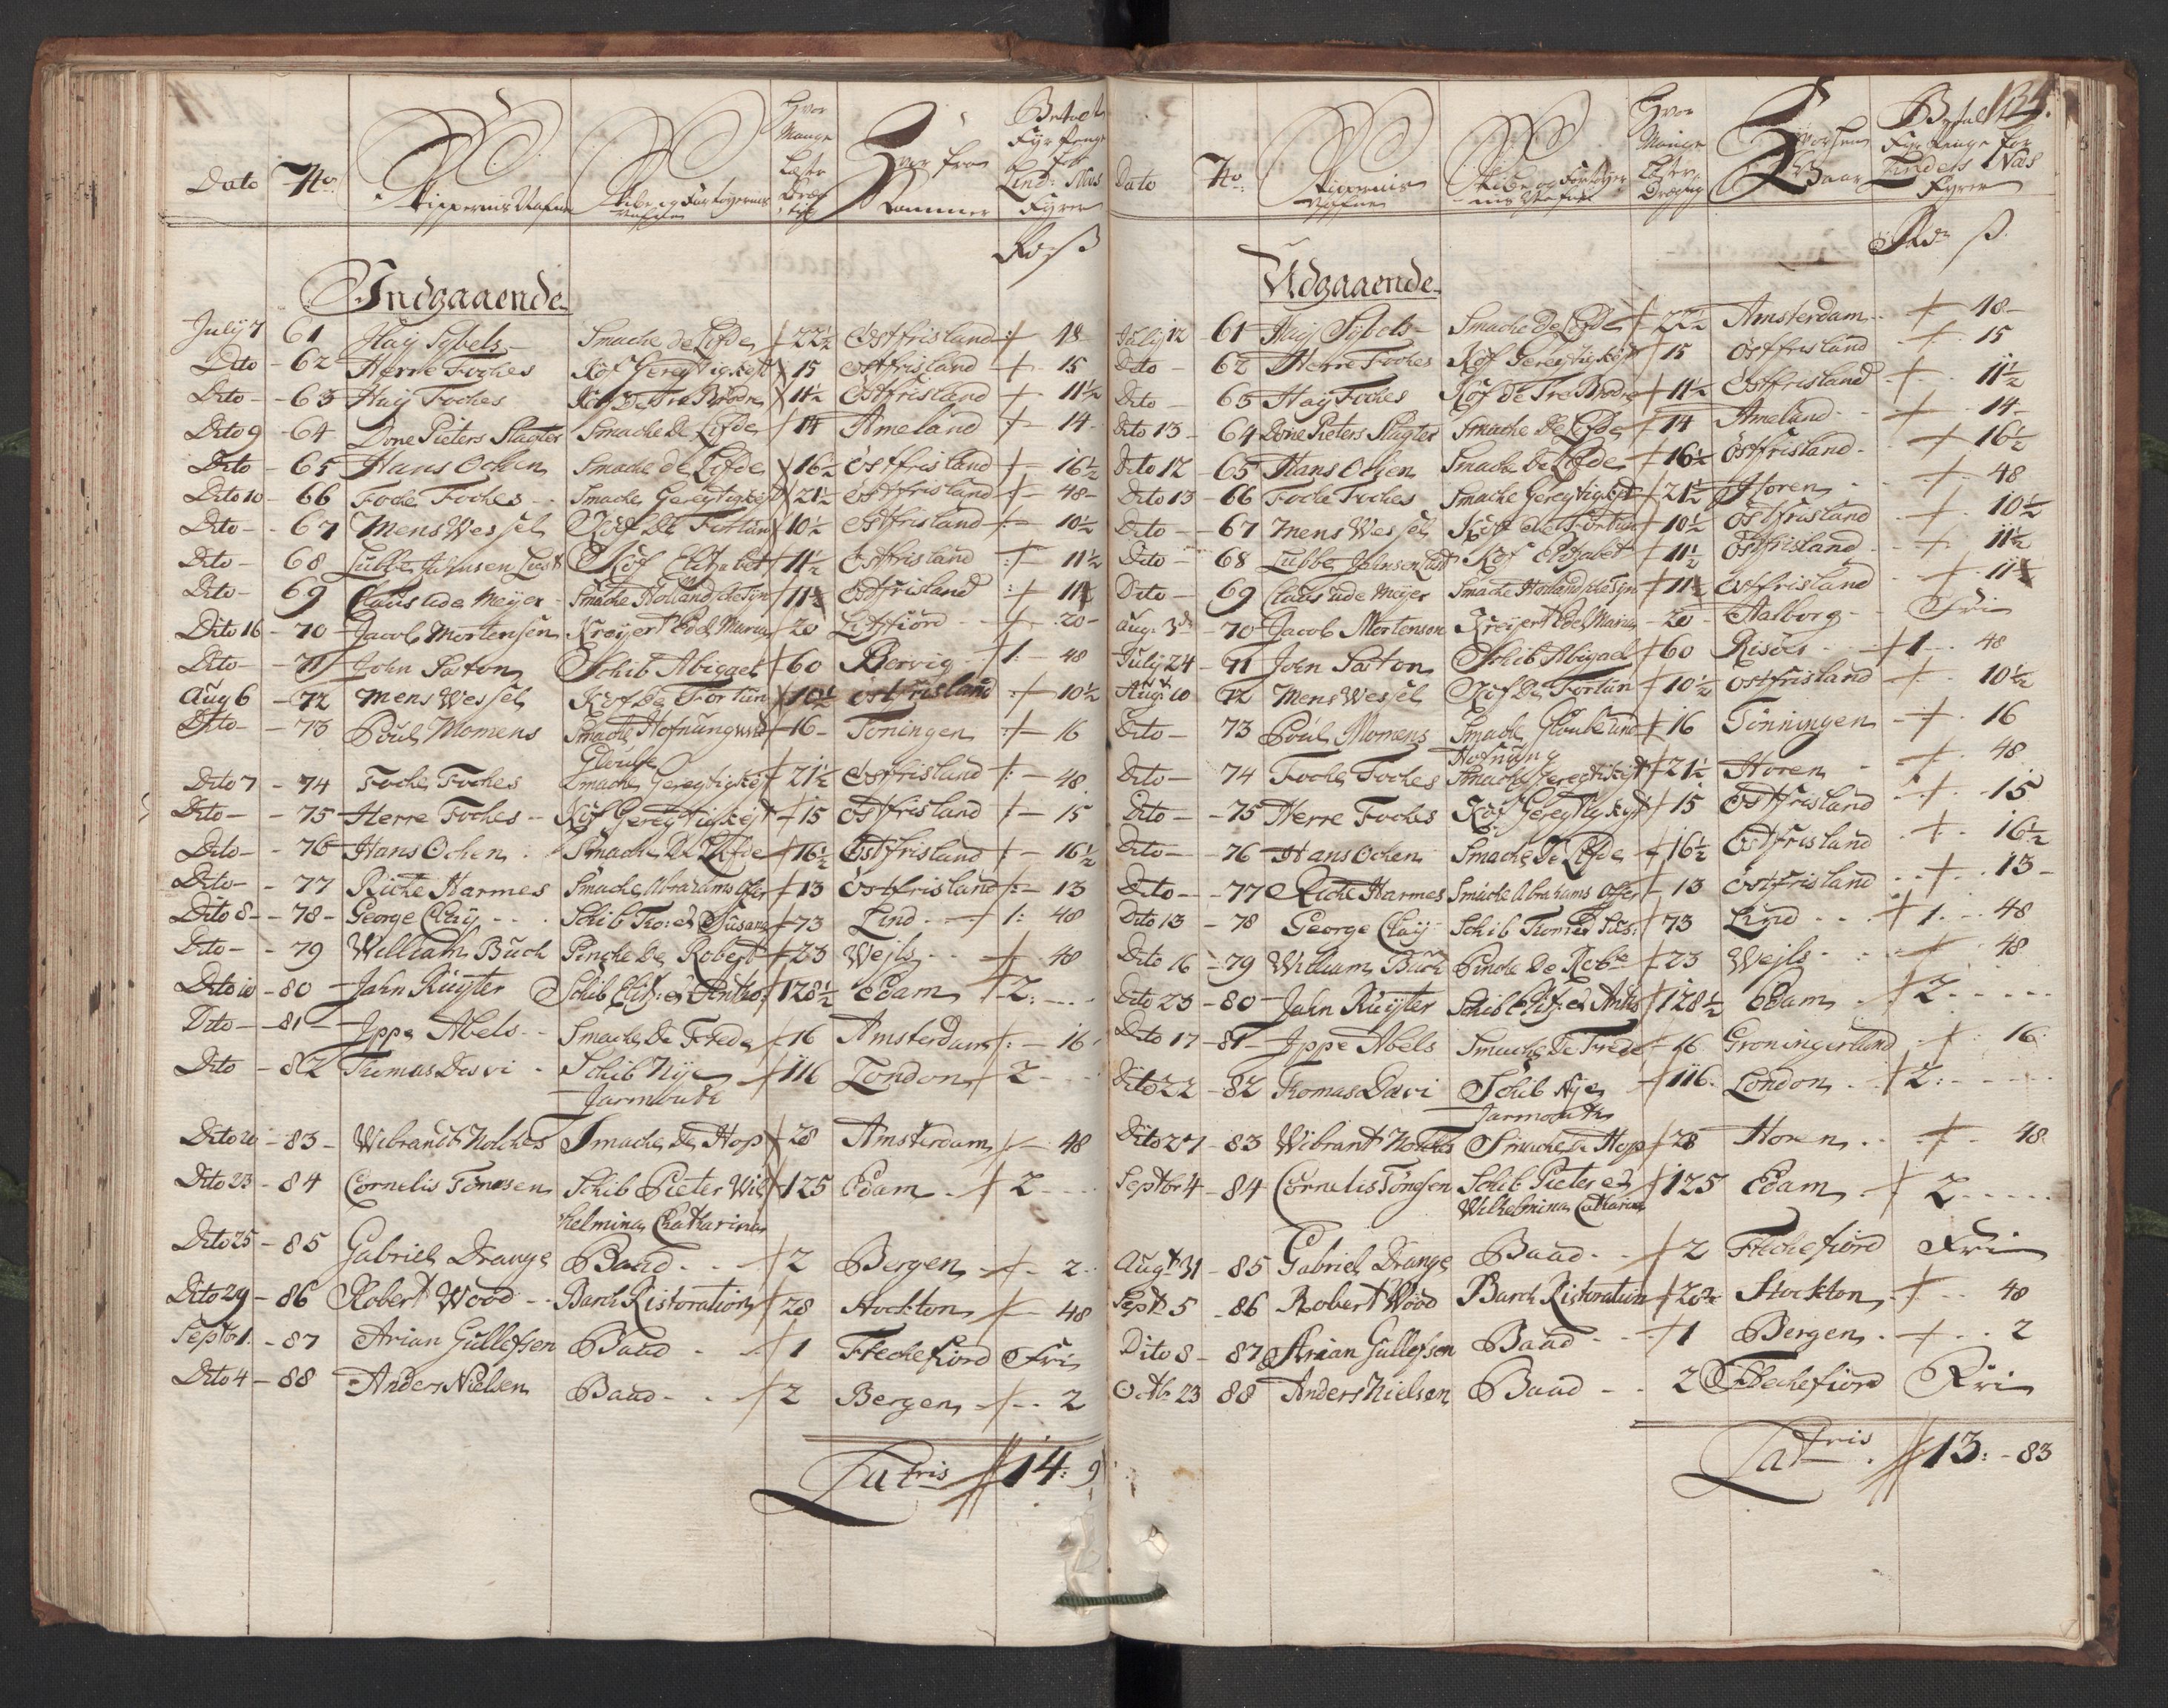 Dato No. Skippernis Nafne Skibe og Fartøyernis Nafne Hvor Mange Læster Dræg-tig Hvor fra kommer Betalt Fyr Penge for Lind: Næs Fyrer
Rd. ß
Indgaaende
July 7 61 Hay Sybels Smacke de Lifde 22½ Ostfrisland 48
Dito 62 Herre Foches Kof Gereytigkeyt 15 Ostfrisland 15
Dito 63 Hay Foches Kof De Tre Brødre 11½ Ostfrisland 11½
Dito 9 64 Done Pieters Slagter Smacke De Lifde 14 Ameland 14
Dito 65 Hans Ochen Smacke de Lifde 16½ Ostfrisland 16½
Dito 10 66 Foche Foches Smacke Gereytigkeyt 21½ Ostfrisland 48
Dito 67 Mens Wessel Kof De Fortun 10½ Ostfrisland 10½
Dito 68 Lubbe Jahnsen Lust Kof Elisabet 11½ Ostfrisland 11½
Dito 69 Claus ude Meyer Smacke Holland 11½ Ostfrisland 11½
Dito 16 70 Jacob Mortensen Kreyert Edel Maria 20 Liffiord 20
Dito 71 John Saston Schib Abigael 60 Bervig 1: 48
Aug 6 72 Mens Wessel Kof De Fortun 10½ Ostfrisland 10½
Dito 73 Poul Momens Smacke Hofnung und 16 Toningen 16
Gloube
Dito 7 74 Foche Foches Smacke Gereytigkeyt 21½ Ostfrisland 48
Dito 75 Herre Foches Kof Gereytigkeyt 15 Ostfrisland 15
Dito 76 Hans Ochen Smacke De Lifde 16½ Ostfrisland 16½
Dito 77 Riche Harmes Smacke Abrahams Offer 13 Ostfrisland 13
Dito 8 78 George Clay Schib Tho: et Susan 73 Lind 1: 48
Dito 79 William Buch Pincke De Robert 23 Wejls 48
Dito 10 80 Jahn Ruyter Schib Elis: et Antho: 128½ Edam 2:
Dito 81 Jppe Abels Smacke De Frede 16 Amsterdam 16
Dito 82 Thomas Desvi Schib Nye 116 London 2
Jarmouth
Dito 20 83 Wibrandt Nolches Smacke De Hop 28 Amsterdam 48
Dito 23 84 Cornelis Tønesen Schib Pieter Wil 125 Edam 2
helmina Chatharina
Dito 25 85 Gabriel Drange Baad 2 Bergen 2
Dito 29 86 Robert Wood Barch Ristoration 28 Stockton 48
Septbr 1. 87 Arian Gullefsen Baad 1 Flechefiord Fri
Dito 4 88 Anders Nielsen Baad 2 Bergen 2
Latris 14: 9
Dato No. Skippernis Nafne Skibe og Fartøyer-nis Nafne Hvor Mange Læster Drægtig Hvorhen Faar Betal Fyr Penge for Lindes Næs Fyrer
124.
Rdr ß.
Udgaaende
July 12 61 Hay Sybols Smacke De Lifde 22½ Amsterdam 48
Dito 62 Herre Foches Kof Gereytigkeyt 15 Ostfrisland 15
Dito 63 Hay Foches Kof de Tre Brødre 11½ Ostfrisland 11½
Dito 13 64 Done Pieters Slagter Smacke De Lifde 14 Ameland 14
Dito 12 65 Hans Ochen Smacke De Lifde 16½ Ostfrisland 16½
Dito 13 66 Foche Foches Smacke Gereytigkeyt 21½ Horen 48
Dito 67 Mens Wessel Kof de Fortun 10½ Ostfrisland 10½
Dito 68 Lubbe Jahnsen Lust Kof Elisabet 11½ Ostfrisland 11½
Dito 69 Claus ude Meyer Smacke Holland 11½ Ostfrisland 11½
Aug. 3d 70 Jacob Mortensen Kreyert Edel Maria 20 Aalborg Fri
July 24 71 John Saston Schib Abigael 60 Risøer 1 48
Augt 10 72 Mens Wessel Kof De Fortun 10½ Ostfrisland 10½
Dito 73 Poul Momens Smacke Gloube und 16 Tonningen 16
Hofnung
Dito 74 Foche Foches Smacke Gereytikeyt 21½ Horen 48
Dito 75 Herre Foches Kof Gereytigkeyt 15 Ostfrisland 15
Dito 76 Hans Ochen Smacke De Lifde 16½ Ostfrisland 16½
Dito 77 Riche Harmes Smacke Abrahams Offer 13 Ostfrisland 13
Dito 13 78 George Clay Schib Thomas et Sus: 73 Lynd 1. 48
Dito 16 79 William Buch Pincke De Robe 23 Wejls 48
Dito 23 80 Jahn Ruyter Schib Elis: et Antho 128½ Edam 2
Dito 17 81 Jppe Abels Smacke De Frede 16 Groningerland 16
Dito 22 82 Thomas Davi Schib Nye 116 London 2:
Jarmouth
Dito 27 83 Wibrant Nolches Smacke De Hop 28 Horen 48
Septbr 4 84 Cornelis Tønesen Schib Pieter et 125 Edam 2
Wilhelmina Catharina
Augt 31 85 Gabriel Drange Baad 2 Flechefiord Fri
Sept. 5 86 Robert Wood Barch Ristoration 28 Stockton 48
Dito 8 87 Arian Gullefsen Baad 1 Bergen 2
Octbr 23 88 Anders Nielsen Baad 2 Flechefiord Fri
Latris 13: 83